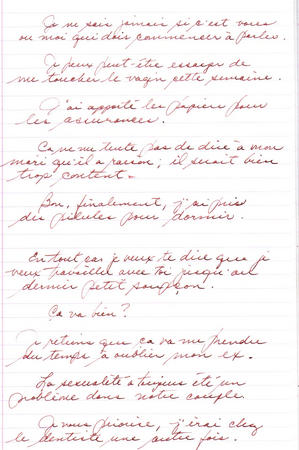 Je ne sais jamais si c'est vous
ou moi qui dois commencer à parler.
Je peux peut-être essayer de
me toucher le vagin cette semaine.
J'ai apporté les papiers pour
les assurances.
Ça ne me tente pas de dire à mon
mari qu'il a raison; il serait bien
trop content.
Bon, finalement, j'ai pris
des pilules pour dormir.
En tout cas je veux te dire que je
veux travailler avec toi jusqu'au
dernier petit soupçon.
Ça va bien?
Je retiens que ça va me prendre
du temps à oublier mon ex.
La sexualité a toujours été un
problème dans notre couple.
Je vous priorise, j'irai chez
le dentiste une autre fois.